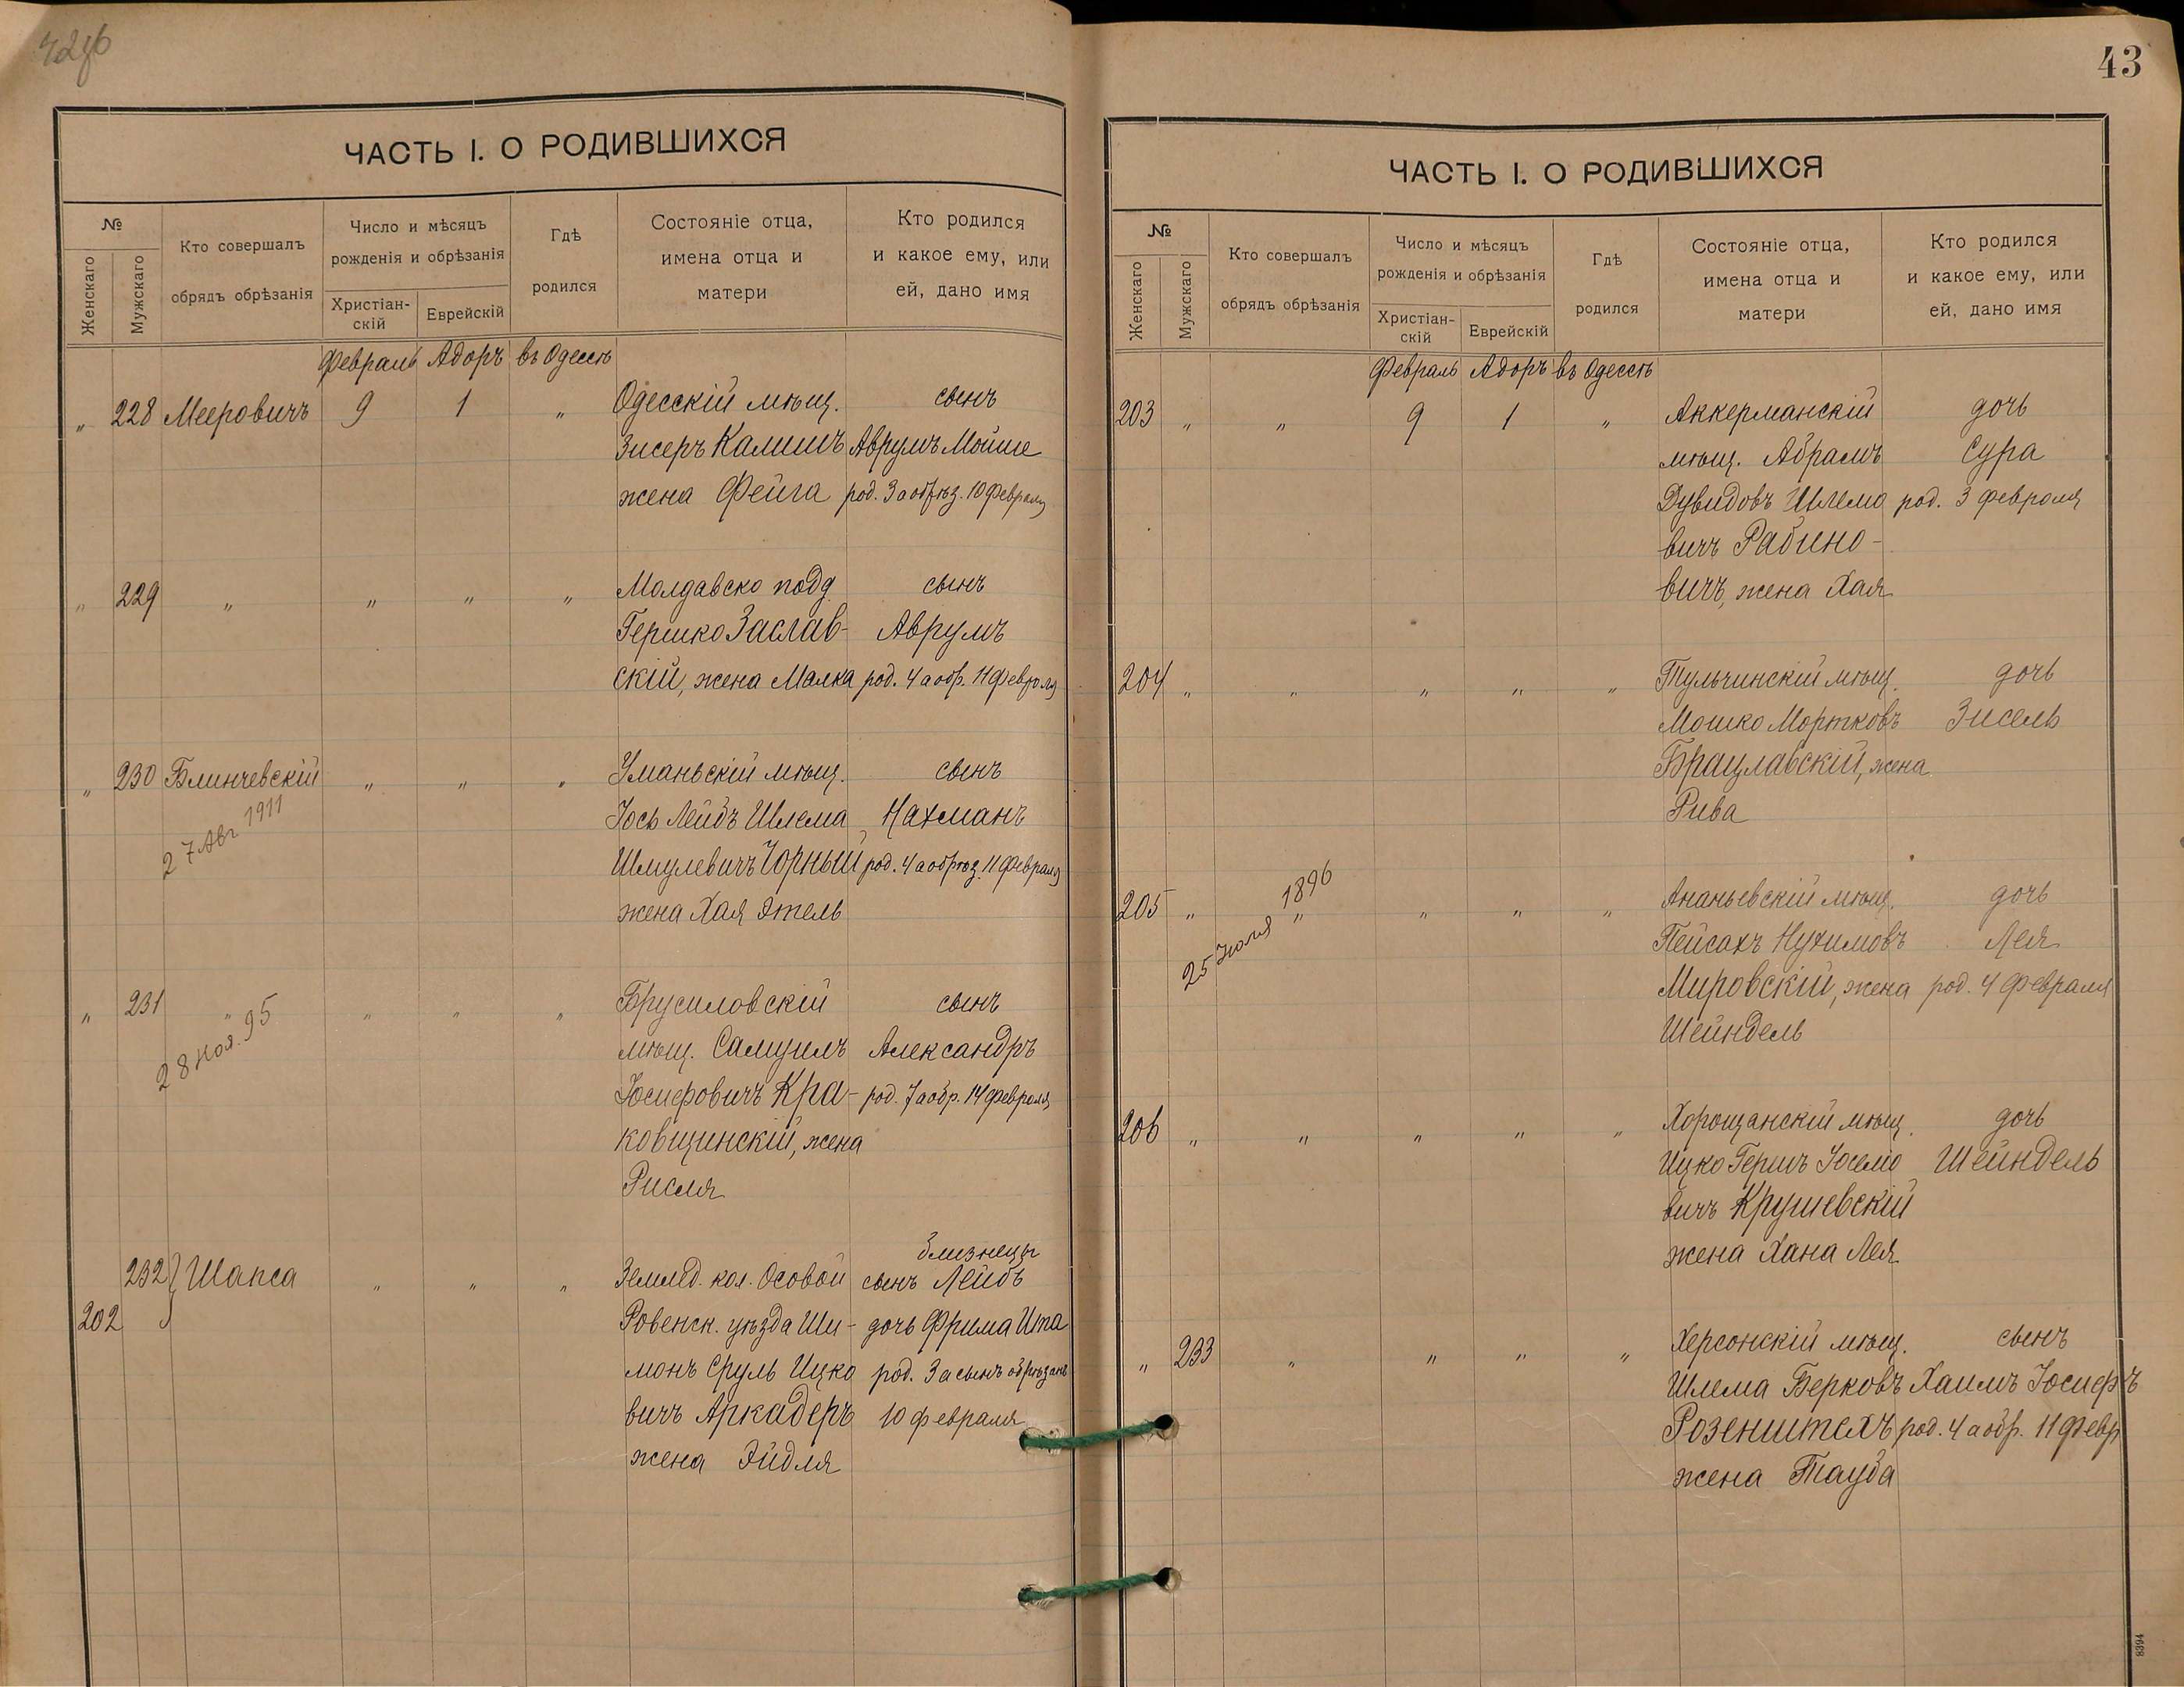 43
ЧАСТЬ I. О РОДИВШИХСЯ
№
Женскаго
Мужскаго
Кто совершалъ
обрядъ обрѣзанія
Число и мѣсяцъ
рожденія и обрѣзанія
Христіан-
скій
Еврейскій
Гдѣ
родился
Состояніе отца,
имена отца и
матери
Кто родился
и какое ему, или
ей, дано имя
Февраль Адоръ въ Одессѣ
„ 228 Мееровичъ 9 1 „ Одесскій мѣщ. сынъ
Зисеръ Калишъ Аврумъ Мойше
жена Фейга род. 3 а обрѣз. 10 февраля
„ 229 „ „ „ „ Молдавско подд. сынъ
Гершко Заслав- Аврумъ
скій, жена Малка род. 4 а обр. 11 февраля
„ 230 Блинчевскій „ „ „ Уманьскій мѣщ. сынъ
27 Авг 1911
Іось Лейбъ Шлема Нахманъ
Шмулевичъ Чорный род. 4 а обрѣз. 11 февраля
жена Хая Этель
„ 231 „ „ „ „ Брусиловскій сынъ
28 Ноя. 95
мѣщ. Самуилъ Александръ
Іосифовичъ Кра- род. 7 а обр. 14 февраля
ковщинскій, жена
Рисля
близнецы
232 Шапса „ „ „ Землед. кол. Осовой сынъ Лейбъ
202 Ровенск. уѣзда Ши- дочь Фрима Ита
монъ Сруль Ицко род. 3 а сынъ обрѣзанъ
вичъ Аркадеръ 10 февраля
жена Эйдля
ЧАСТЬ I. О РОДИВШИХСЯ
№
Женскаго
Мужскаго
Кто совершалъ
обрядъ обрѣзанія
Число и мѣсяцъ
рожденія и обрѣзанія
Христіан-
скій
Еврейскій
Гдѣ
родился
Состояніе отца,
имена отца и
матери
Кто родился
и какое ему, или
ей, дано имя
Февраль Адоръ въ Одессѣ
203 „ „ 9 1 „ Аккерманскій дочь
мѣщ. Абрамъ Сура
Дувидовъ Шлемо род. 3 февраля
вичъ Рабино-
вичъ, жена Хая
204 „ „ „ „ „ Тульчинскій мѣщ. дочь
Мошко Мортковъ Зисель
Брацлавскій, жена
Рива
205 „ „ „ „ „ Ананьевскій мѣщ. дочь
25 Іюля 1896
Пейсахъ Нухимовъ Лея
Мировскій, жена род. 4 февраля
Шейндель
206 „ „ „ „ „ Хорощанскій мѣщ. дочь
Ицко Гершъ Іосело Шейндель
вичъ Крушевскій
жена Хана Лея
„ 233 „ „ „ „ Херсонскій мѣщ. сынъ
Шлема Берковъ Хаимъ Іосифъ
Розенштехъ род. 4 а обр. 11 февр
жена Тауба
8394